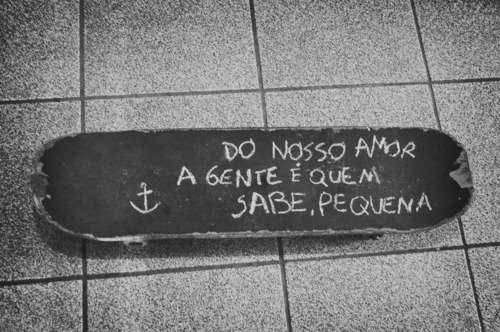 DO NOSSO AMOR
A GENTE É QUEM
SABE, PEQUENA